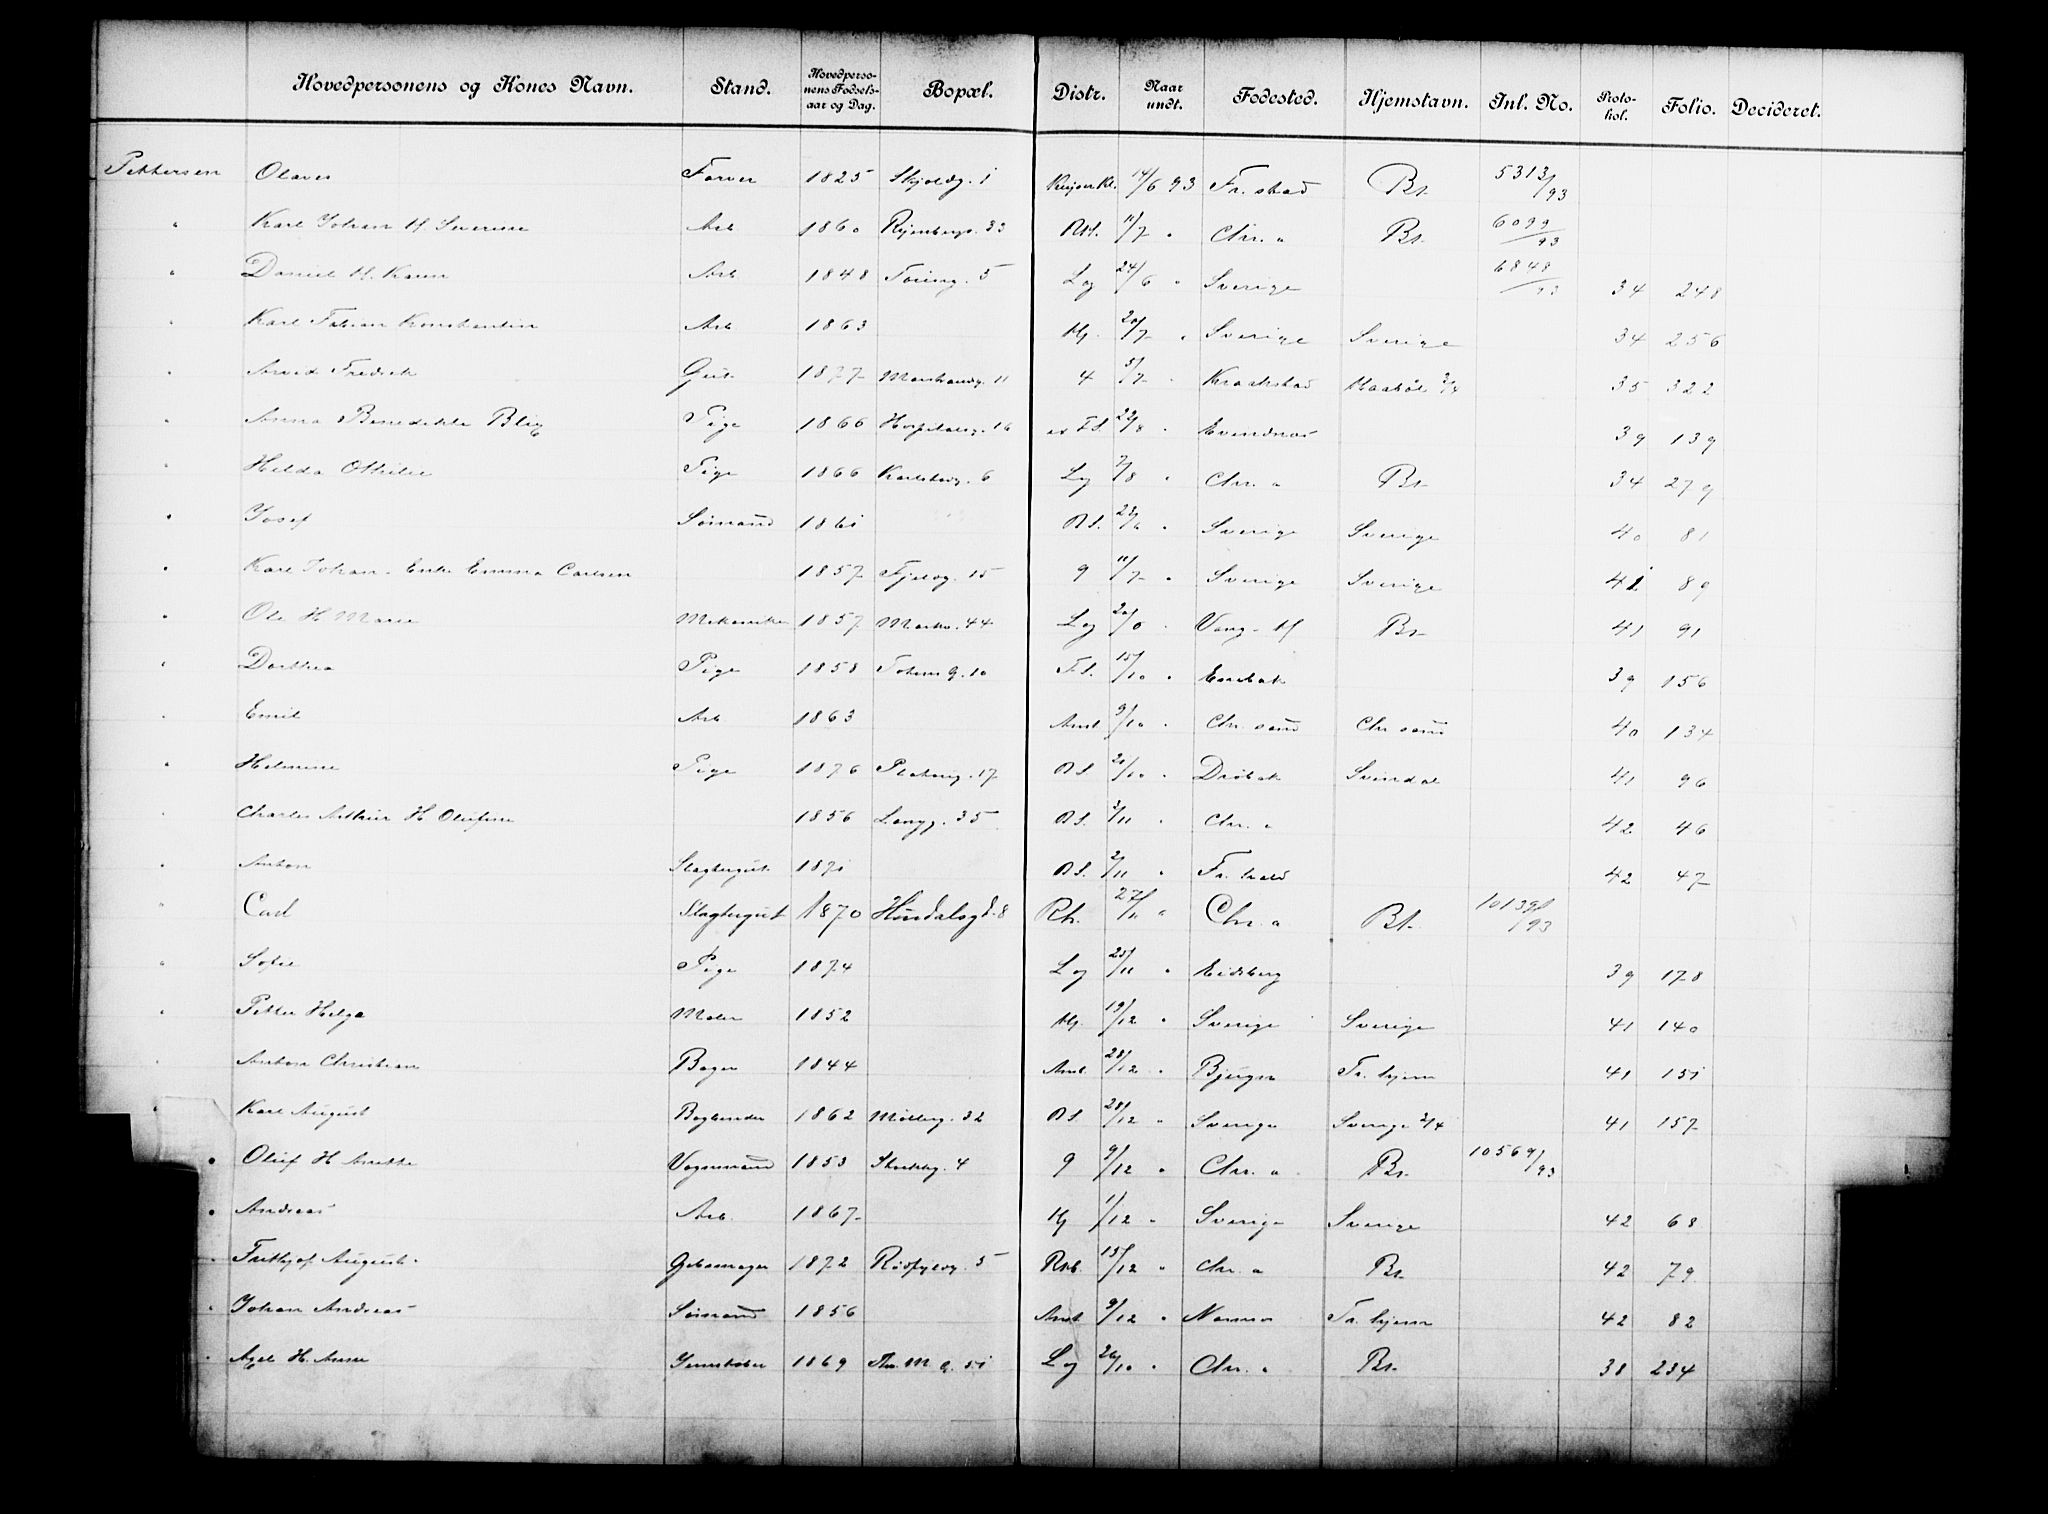 Hovedpersonens og Kones Navn. Stand. Hovedperso-nens Fødsels-aar og Dag. Bopæl. Distr. Naar undt. Fødested. Hjemstavn. Inl. No. Proto-kol. Folio. Decideret.
Pettersen Olaves Farver 1825 Skjoldg. 1 14/6 93 Fr.stad Bt. 5313/93
" Karl Johan H. Severine Arb 1860 33 11/7 " Chr.a Bt. 6099/93
" Daniel H. Karen Arb 1848 Tøieng. 5 Log 24/6 " Sverige 6848/93 34 248
" Karl Fabian Konstantin Arb 1863 Hj. 20/7 " Sverige Sverige 34 256
" Arvid Fredrik Gut 1877 Markvandg. 11 4 5/7 " Kraakstad 35 322
" Anna Benedikte Blix Pige 1866 Hospitalsg. 16 22/8 " Evindnes 39 139
" Hilda Othilie Pige 1866 6 Log 7/8 " Chr.a Bt. 34 279
" Josef Sømand 1861 Sverige Sverige 40 81
" Karl Johan. Enke Emma Carlsen 1857 Fjeldg. 15 9 11/7 " Sverige Sverige 41 89
" Ole H Marie Mekaniker 1857 Markv. 44 Log Vang H Bt. 41 91
" Dorthea Pige 1858 Tostrup 9.10 F.S. 15/10 " Enebak 39 156
" Emil Arb 1863 Amt. 9/10 " Chr.sand Chr sand 40 134
" Helmine Pige 1876 17 Drøbak Svindal 41 96
" Charles Arthur H Olufine 1856 Langg. 35 3/11 " Chr.a 42 46
" Anton Slagtergut 1871 2/11 " Fr.hald 42 47
" Carl Slagtergut 1870 8 Rh. 27/11 " Chr.a Bt. 10139/93
" Sofie Pige 1874 Log 25/11 " Eidsberg 39 178
" Petter Helge Maler 1852 Hj. 19/12 " Sverige Sverige 41 140
" Anton Christian Bager 1844 Amt. 28/12 " Bjugn Tr.hjem 41 151
" Karl August Bogbinder 1862 Møllerg. 32 28/12 " Sverige Sverige 2/4 41 157
" Oluf H Anette Vognmand 1853 4 9 9/12 " Chr.a Bt. 10569/93
" Andreas Arb. 1867 Hj 1/12 " Sverige Sverige 42 68
" Frithjof August Gibsmager 1872 Rødfyldg. 5 15/12 " Chr.a Bt. 42 79
" Johan Andreas Sømand 1856 Amt. 9/12 " Namsos Tr.hjem 42 82
" Axel H. Anna 1869 Thv. M. g. 51 Log 26/10 " Chr.a Bt. 38 234